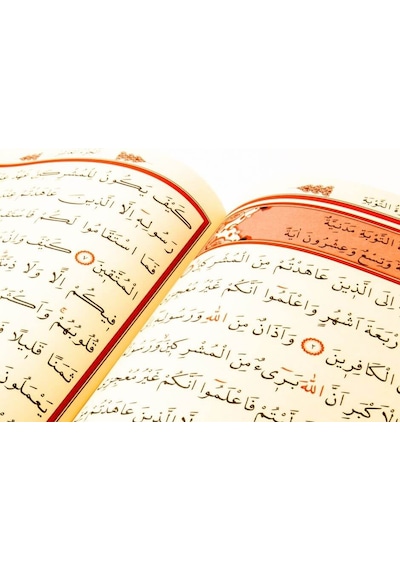 التَّوْبَةِ
التَّوْبَةِ مَدَنِيَّةٌ
وَتِسْعٌ وَعِشْرُونَ اٰيَةً
اِلَى الَّذِينَ عَاهَدْتُمْ مِنَ الْمُشْرِكِ
رْبَعَةَ اَشْهُرٍ وَاعْلَمُوا اَنَّكُمْ غَيْرُ
الْكَافِرِينَ ٢ وَاَذَانٌ مِنَ اللّٰهِ وَرَسُو
الْاَكْبَرِ اَنَّ اللّٰهَ بَرِيءٌ مِنَ الْمُشْرِكِينَ وَرَسُو
فَاعْلَمُوا اَنَّكُمْ غَيْرُ مُعْجِز
الَّا الَّذِينَ عَاهَدْتُمْ
كَيْفَ يَكُونُ لِلْمُشْرِكِينَ عَهْدٌ
رَسُولِهِ اِلَّا الَّذِينَ عَاهَدْتُمْ
فَمَا اسْتَقَامُوا لَكُمْ
الْمُتَّقِينَ ٧ كَيْفَ وَاِنْ
فِيكُمْ اِلًّا وَلَا ذِمَّ
قُلُوبُهُمْ وَاَكْثَ
ثَمَنًا قَلِيلًا
يَعْمَلُونَ